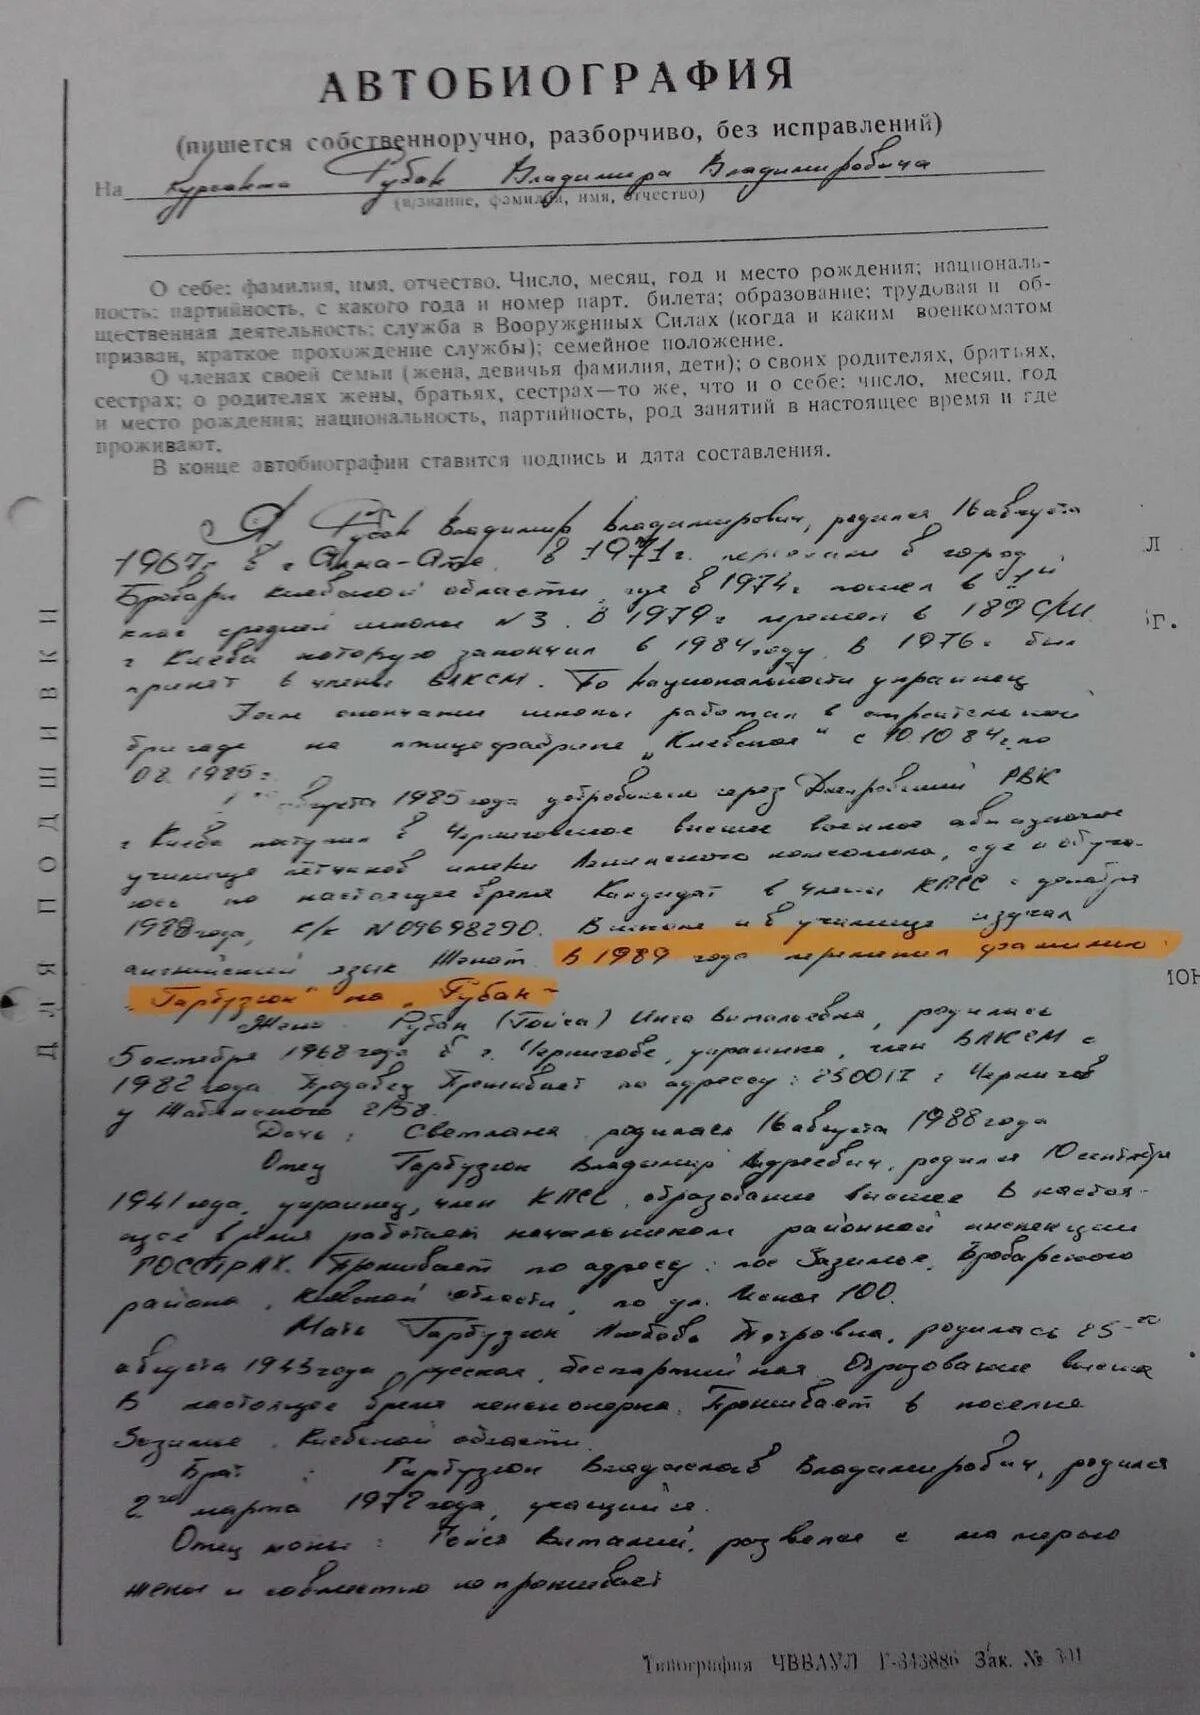 АВТОБИОГРАФИЯ
(пишется собственноручно, разборчиво, без исправлений)
На курсанта Рубан Владимира Владимировича
(в/звание, фамилия, имя, отчество)
О себе: фамилия, имя, отчество. Число, месяц, год и место рождения; националь-
ность; партийность, с какого года и номер парт. билета; образование; трудовая и об-
щественная деятельность; служба в Вооруженных Силах (когда и каким военкоматом
призван, краткое прохождение службы); семейное положение.
О членах своей семьи (жена, девичья фамилия, дети); о своих родителях, братьях,
сестрах; о родителях жены, братьях, сестрах—то же, что и о себе: число, месяц, год
и место рождения; национальность, партийность, род занятий в настоящее время и где
проживают.
В конце автобиографии ставится подпись и дата составления.
Я Рубан Владимир Владимирович, родился 16 августа
1967г в г Алма-Ате. в 1971г. переехали в город
Бровары Киевской области, где в 1974г пошел в 1й
клас средней школы N 3. В 1979г перешел в 189 СШ
г Киева которую закончил в 1984году. В 1976г был
принят в члены ВЛКСМ. По национальности украинец
После окончания школы работал в строительной
бригаде на птицефабрике „Киевская" с 10.10 84г. по
08. 1985г.
августа 1985 года добровольно через Днепровский РВК
г Киева поступил в Черниговское высшее военное авиационное
училище лётчиков имени Ленинского комсомола, где и обуча-
юсь по настоящее время Кандидат в члены КПСС с декабря
1988года, к/к N 09698290. В школе и в училище изучал
английский язык. В 1989 года переменил фамилию
„Гарбузюк" на „Рубан"
Жена Рубан (Гойса) Инга Витальевна, родилась
5 октября 1968 года в г. Чернигове, украинка, член ВЛКСМ с
1982 года Продавец Проживает по адрессу: 250017 г Чернигов
у 2/58.
Дочь: Светлана родилась 16 августа 1988 года
Отец Гарбузюк Владимир Андреевич, родился 10 сентября
1941 года, украинец, член КПСС, образование высшее В настоя-
щее время работает начальником районной инспекции
ГОССТРАХ. Проживает по адресу: пос Зазимье, Броварского
района, Киевской области, по ул. 100.
Мать Гарбузюк Любовь Петровна, родилась 25-го
августа 1943 года, русская, беспартийная. Образование высшее
В настоящее время пенсионерка. Проживает в поселке
Зазимье, Киевской области.
Брат: Гарбузюк Владислав Владимирович, родился
2го марта 1972 года, учащийся.
Отец жены: Гойса Виталий, развелся с матерью
жены и совместно не проживает
ДЛЯ ПОДШИВКИ
Типография ЧВВАУЛ Г-343886 Зак. № 301
л
г.
ЮН